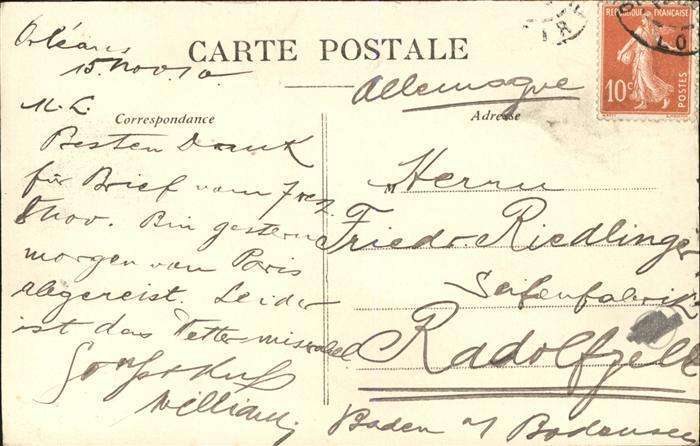 CARTE POSTALE
Orléans
15. Nov. 10.
Allemagne
RÉPUBLIQUE FRANÇAISE
10c
POSTES
Correspondance
Adresse
M. L.
Besten Dank
für Brief vom 7 resp.
8 Nov. Bin gestern
morgen von Paris
abgereist. Leider
ist das Wetter miserabel
Gruss & Kuss
William
M
Herrn
Friedr. Riedlinger
Seifenfabrik
Radolfzell
Baden a/ Bodensee